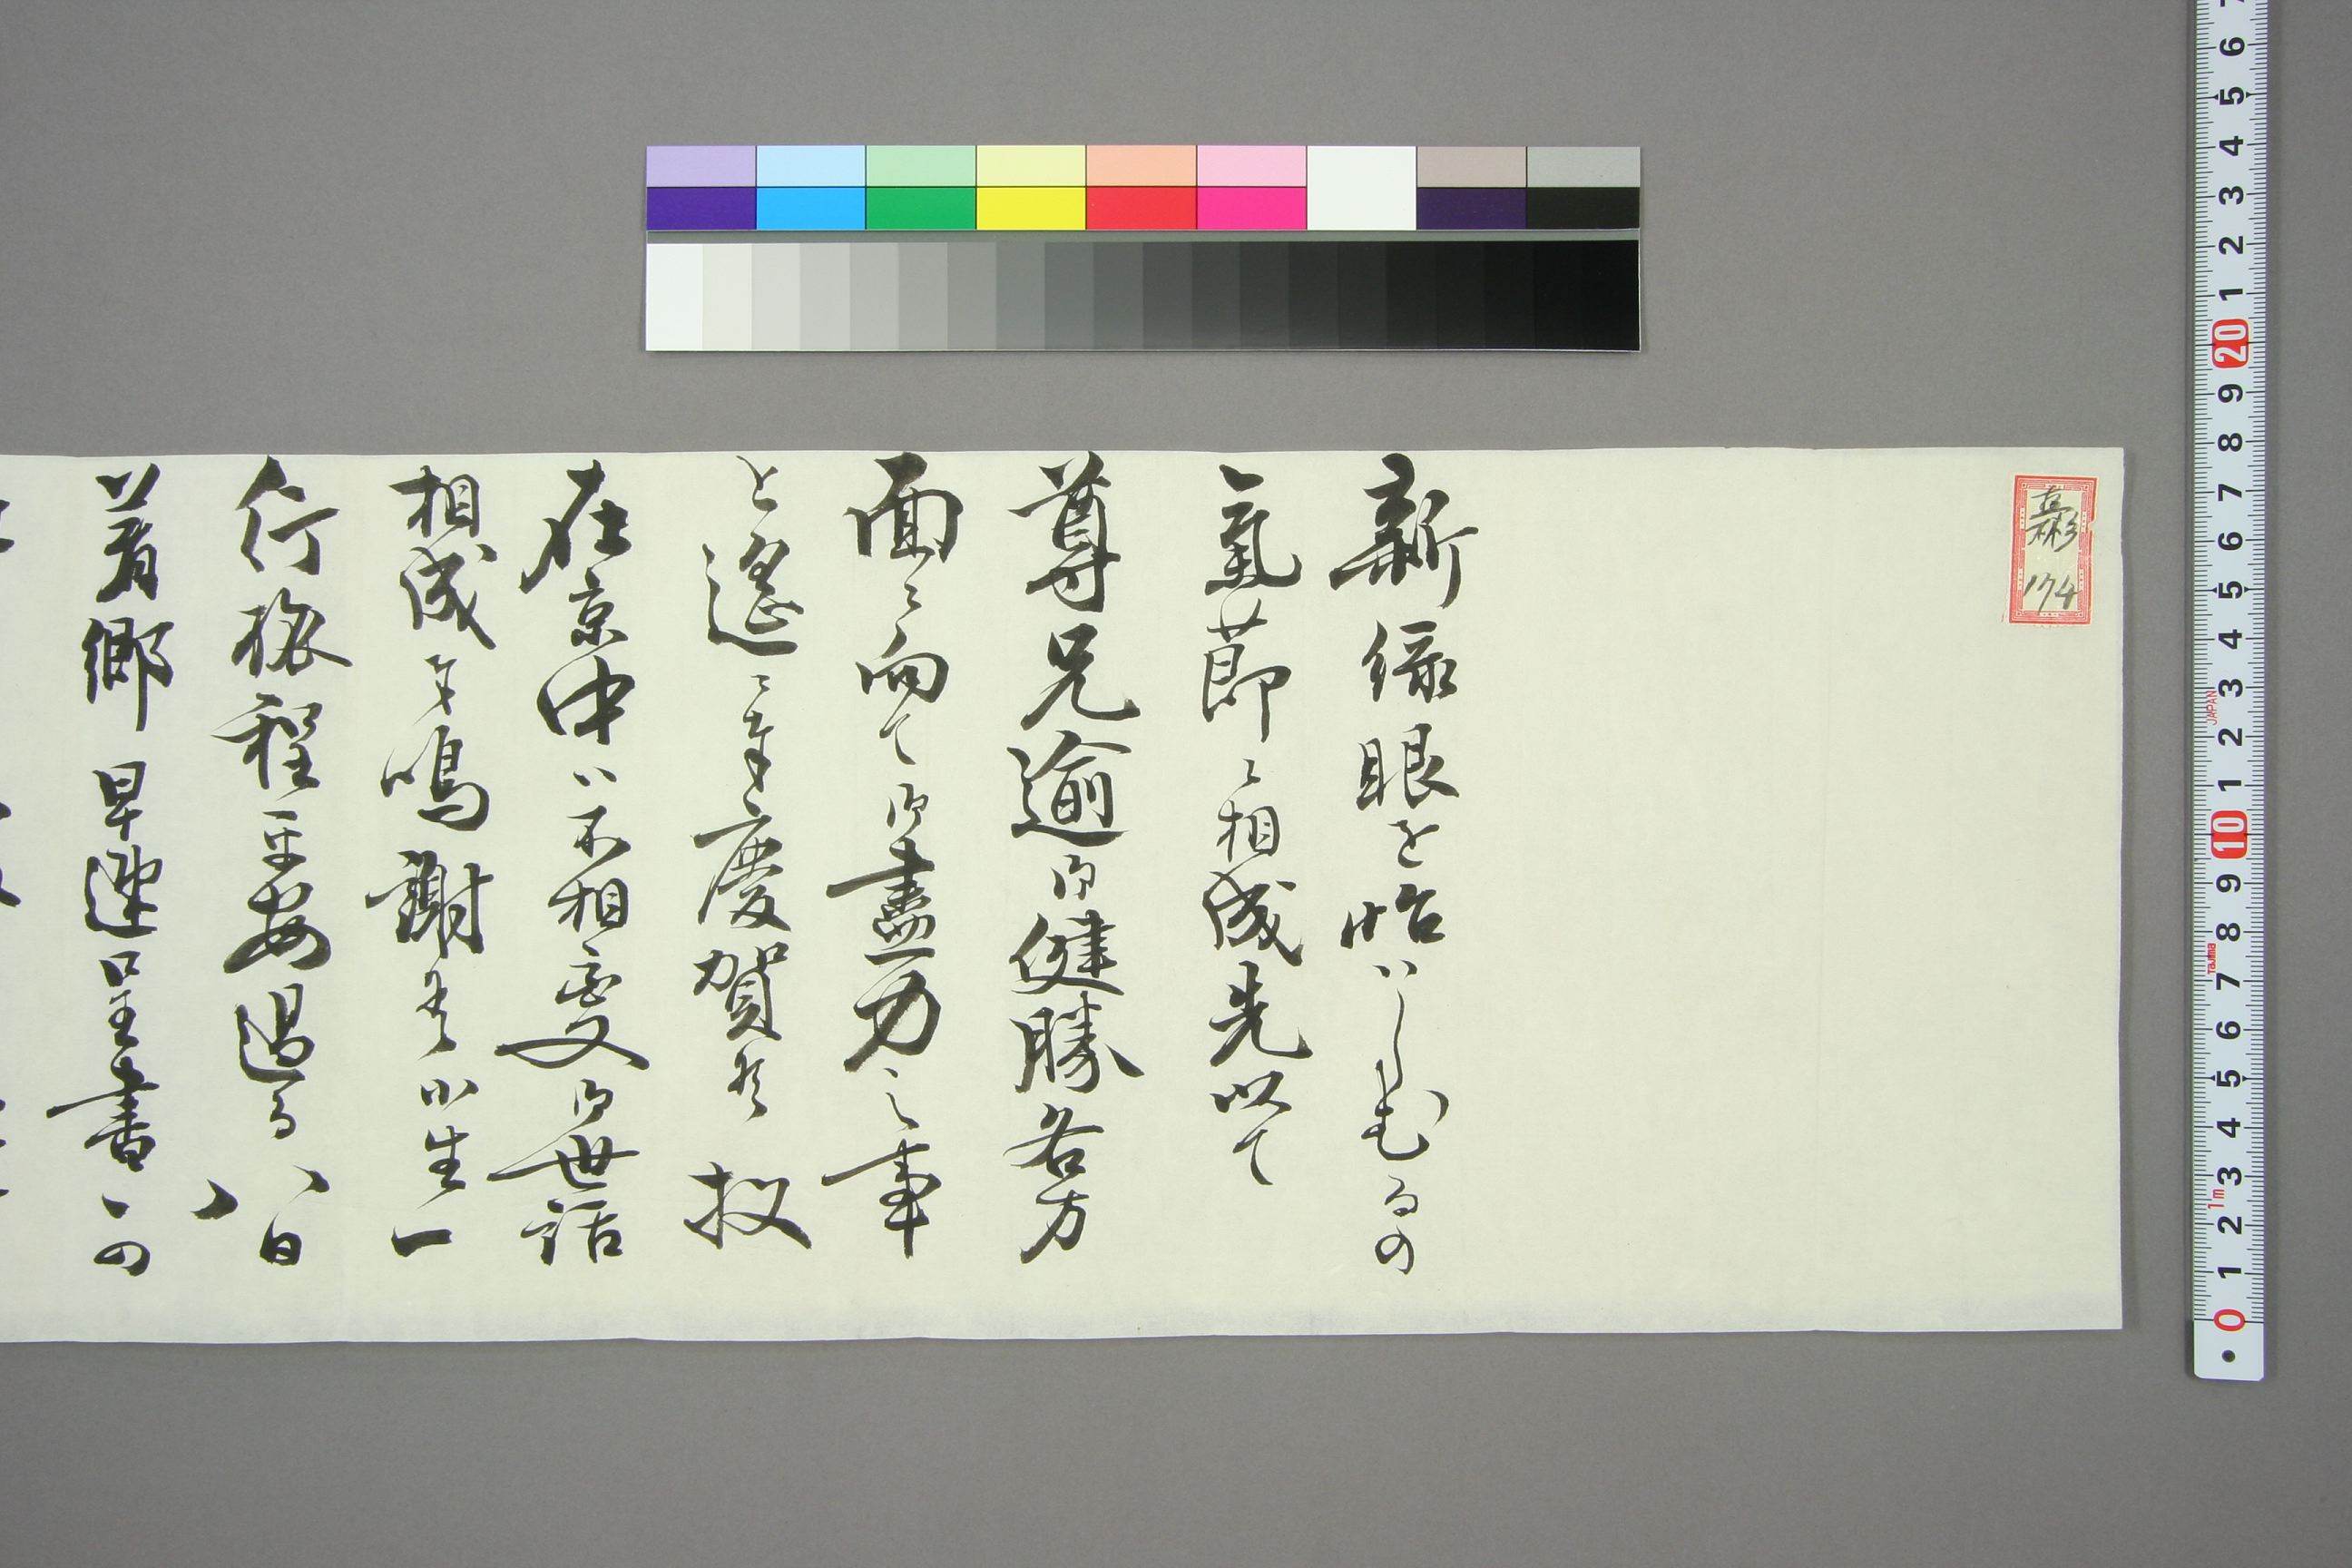 嘉彬
174
新緑眼を怡ハしむるの
氣節ニ相成先以て
尊兄逾御健勝各方
面ニ向て御盡力之事
と遙ニ奉慶賀候 扨
在京中ハ不相変御世話
相成奉鳴謝候 小生一
行旅程平安過る八日
ニ着郷早速呈書可
0 1 2 3 4 5 6 7 8 9 10 1 2 3 4 5 6 7 8 9 20 1 2 3 4 5 6
1m Tajima JAPAN